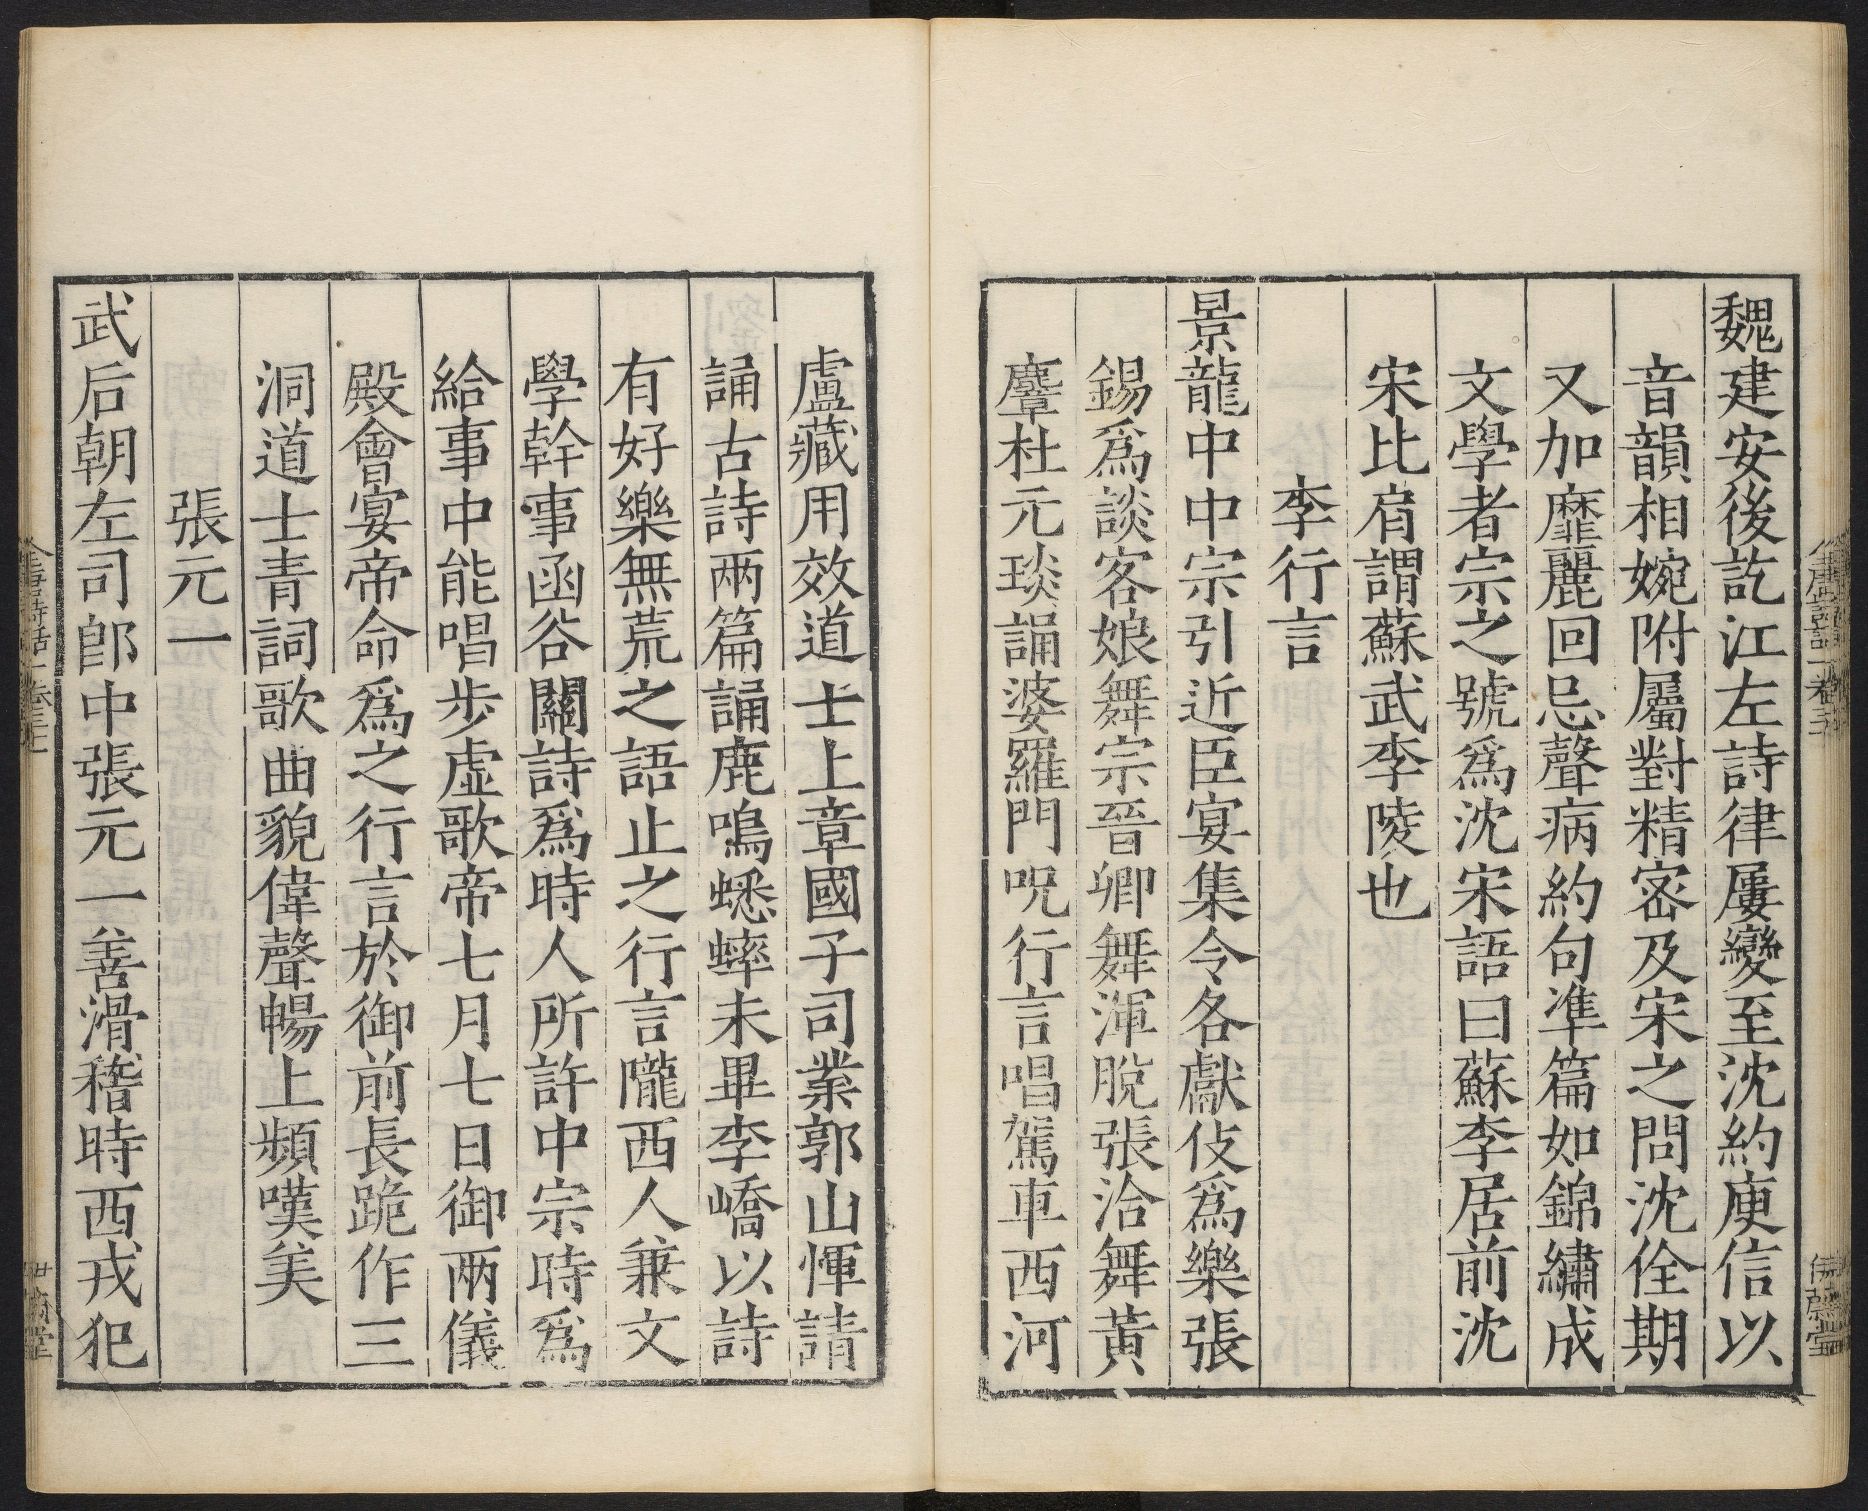 魏建安後訖江左詩律屢變至沈約庾信以
音韻相婉附屬對精密及宋之問沈佺期
又加靡麗回忌聲病約句準篇如錦繡成
文學者宗之號爲沈宋語曰蘇李居前沈
宋比肩謂蘇武李陵也
李行言
景龍中中宗引近臣宴集令各獻伎爲樂張
錫爲談客娘舞宗晉卿舞渾脫張洽舞黃
麞杜元琰誦婆羅門呪行言唱駕車西河
盧藏用效道士上章國子司業郭山惲請
誦古詩兩篇誦鹿鳴蟋蟀未畢李嶠以詩
有好樂無荒之語止之行言隴西人兼文
學幹事函谷關詩爲時人所許中宗時爲
給事中能唱步虛歌帝七月七日御兩儀
殿會宴帝命爲之行言於御前長跪作三
洞道士青詞歌曲貌偉聲暢上頻嘆美
張元一
武后朝左司郎中張元一善滑稽時西戎犯